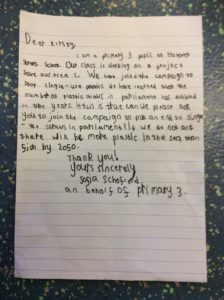 Dear Kirsty
I am a primary 3 pupil at
School. Our class is working on a project
save our oceans. We have joined the campaign to
stop single-use plastics. We have learned that the
number of plastic straws in parliament has
in two years. If this is true can we please ask
you to join the campaign to put an end to single
-use straws in parliament. If we do not act
there will be more plastic in the sea than
fish by 2050.
Thank you!
Yours sincerely
Sofia
on behalf of primary 3.